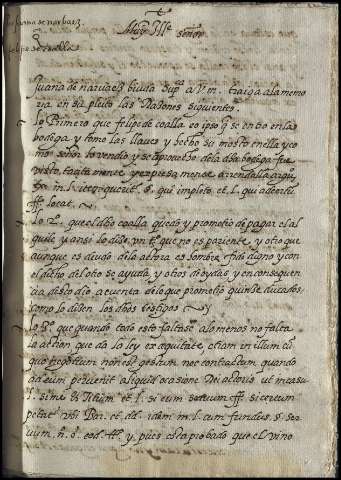 Juana de narbaez
felipe de coalla
Muy Ill.e señor
Juana de narvaez biuda supca a Vm. traiga a la memo
ria en su pleito las Razones siguientes.
Lo Primero que felipe de coalla eo ipso q̃ se entro en la
bodega y tomo las llaves y hecho su mosto en ella y co
mo señor lo vendio y se aprovecho de la dha bodega fue
visto tacitamente y expresamente arrendalla
Lo 2.º que el dho coalla quedo y prometio de pagar el al
quile y ansi lo dize un tº que no es pariente, y otro que
aunque es deudo de la actora es hombre fidedigno y con
el dicho del otro se ayuda, y otros de oydas y en consequen
cia desto dio a cuenta de lo que prometio quinze ducados
como lo dizen los dhos testigos
Lo 3.º que quando todo esto faltase alomenos no falta
la action que da la ley ex aequitate, etiam in illum cu
quo negotium non est gestum nec contractum quando
ad eum pervenit aliquid occasione rei actoris ut in casu
l. si me et Titium et l. si eum servum ff. si certum
petat
vum eod. tt. y pues esta probado que el vino